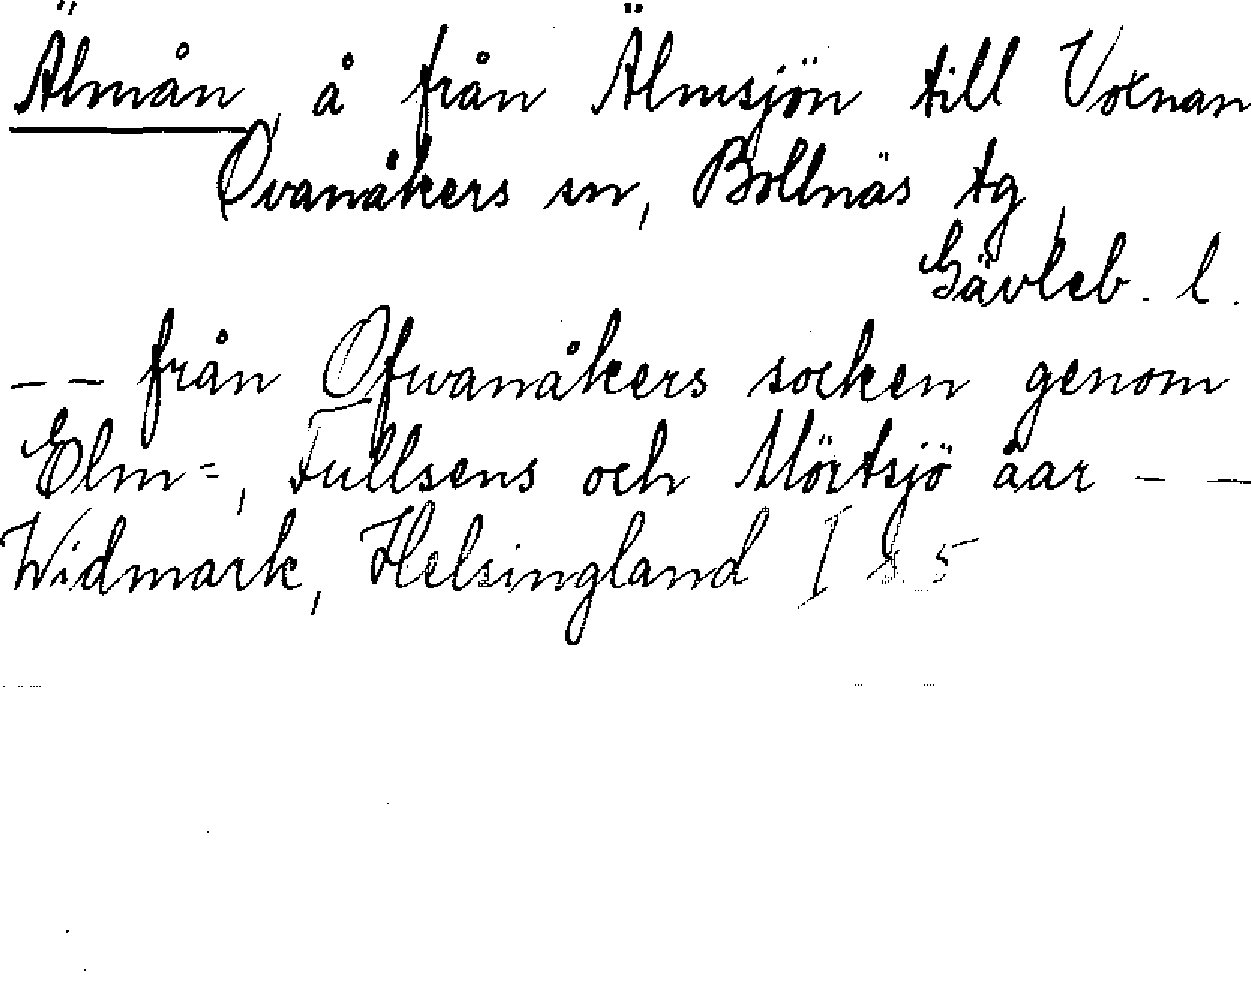 Älmån, å från Älmsjön till Voxnan
Ovanåkers sn, Bollnäs tg,
Gävleb. l.
-- från Ofwanåkers socken genom
Elm=, Fullsens och Mörtsjö åar --
Widmark, Helsingland I s. 5